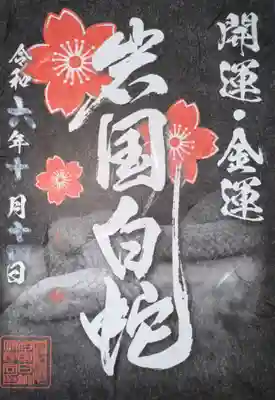 開運・金運
岩国白蛇
令和六年十月十一日